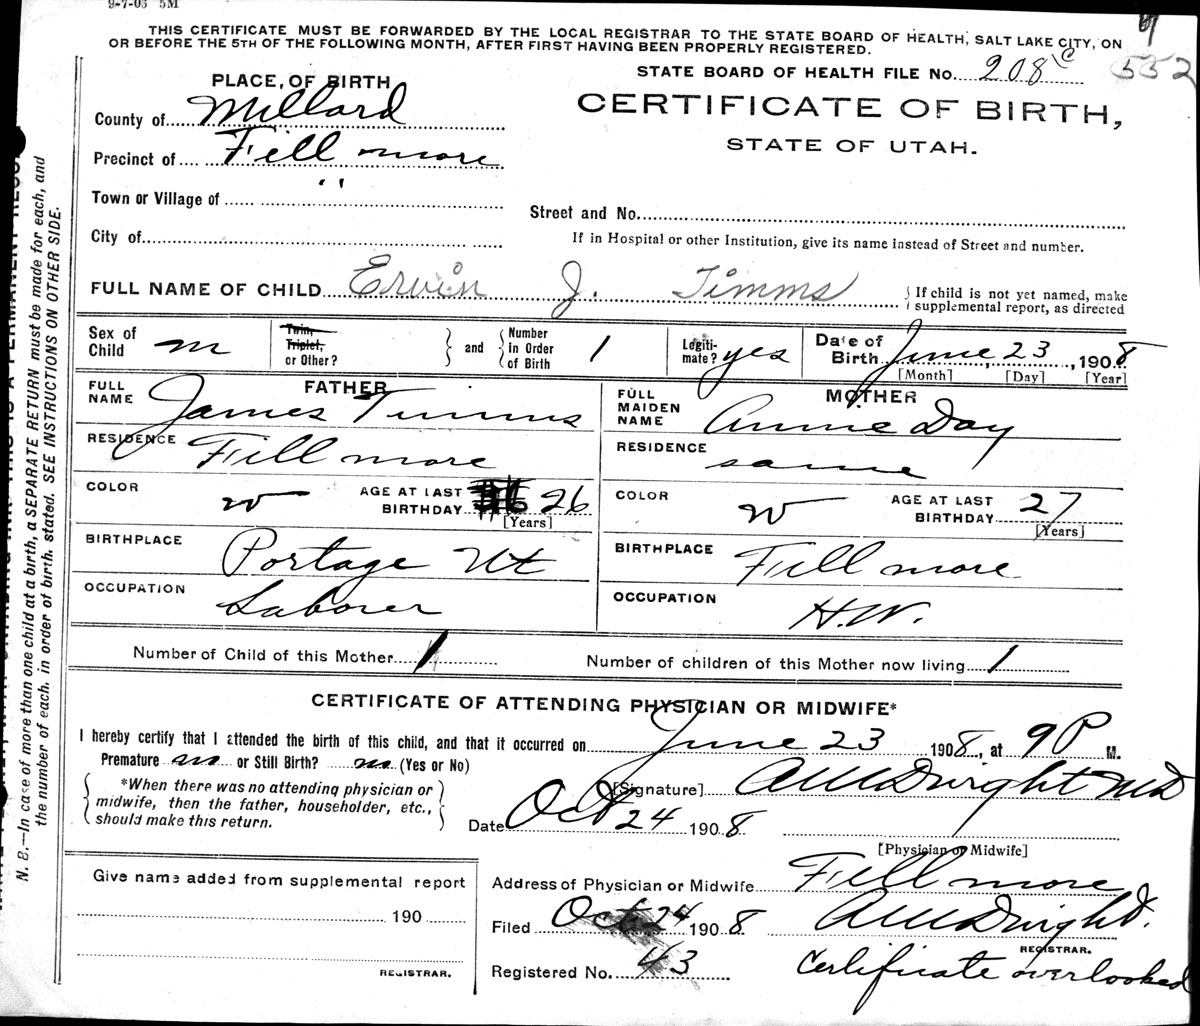 9-7-05 5M
THIS CERTIFICATE MUST BE FORWARDED BY THE LOCAL REGISTRAR TO THE STATE BOARD OF HEALTH, SALT LAKE CITY, ON
OR BEFORE THE 5TH OF THE FOLLOWING MONTH, AFTER FIRST HAVING BEEN PROPERLY REGISTERED.
STATE BOARD OF HEALTH FILE No. 208 552
PLACE OF BIRTH
CERTIFICATE OF BIRTH,
STATE OF UTAH.
County of Millard
Precinct of Fillmore
Town or Village of "
Street and No.
City of
If in Hospital or other Institution, give its name instead of Street and number.
FULL NAME OF CHILD Ervin J. Timms { If child is not yet named, make
supplemental report, as directed
Sex of Child m Twin, Triplet, or Other? } and { Number in Order of Birth 1 Legiti-mate? yes Date of Birth June 23, 1908
[Month] [Day] [Year]
FATHER
FULL NAME James Timms
RESIDENCE Fillmore
COLOR W AGE AT LAST BIRTHDAY 26
[Years]
BIRTHPLACE Portage Ut
OCCUPATION Laborer
MOTHER
FULL MAIDEN NAME Annie Day
RESIDENCE same
COLOR W AGE AT LAST BIRTHDAY 27
[Years]
BIRTHPLACE Fillmore
OCCUPATION H.W.
Number of Child of this Mother 1 Number of children of this Mother now living 1
CERTIFICATE OF ATTENDING PHYSICIAN OR MIDWIFE*
I hereby certify that I attended the birth of this child, and that it occurred on June 23 1908, at 9 P M.
Premature no or Still Birth? no (Yes or No)
*When there was no attending physician or
midwife, then the father, householder, etc.,
should make this return.
[Signature] Dwight MD
Date Oct 24 1908
[Physician or Midwife]
Give name added from supplemental report
190
REGISTRAR.
Address of Physician or Midwife Fillmore
Filed Oct 24 1908 Dwight.
REGISTRAR.
Registered No. 43 Certificate overlooked
N. B.—In case of more than one child at a birth, a SEPARATE RETURN must be made for each, and
the number of each, in order of birth, stated. SEE INSTRUCTIONS ON OTHER SIDE.